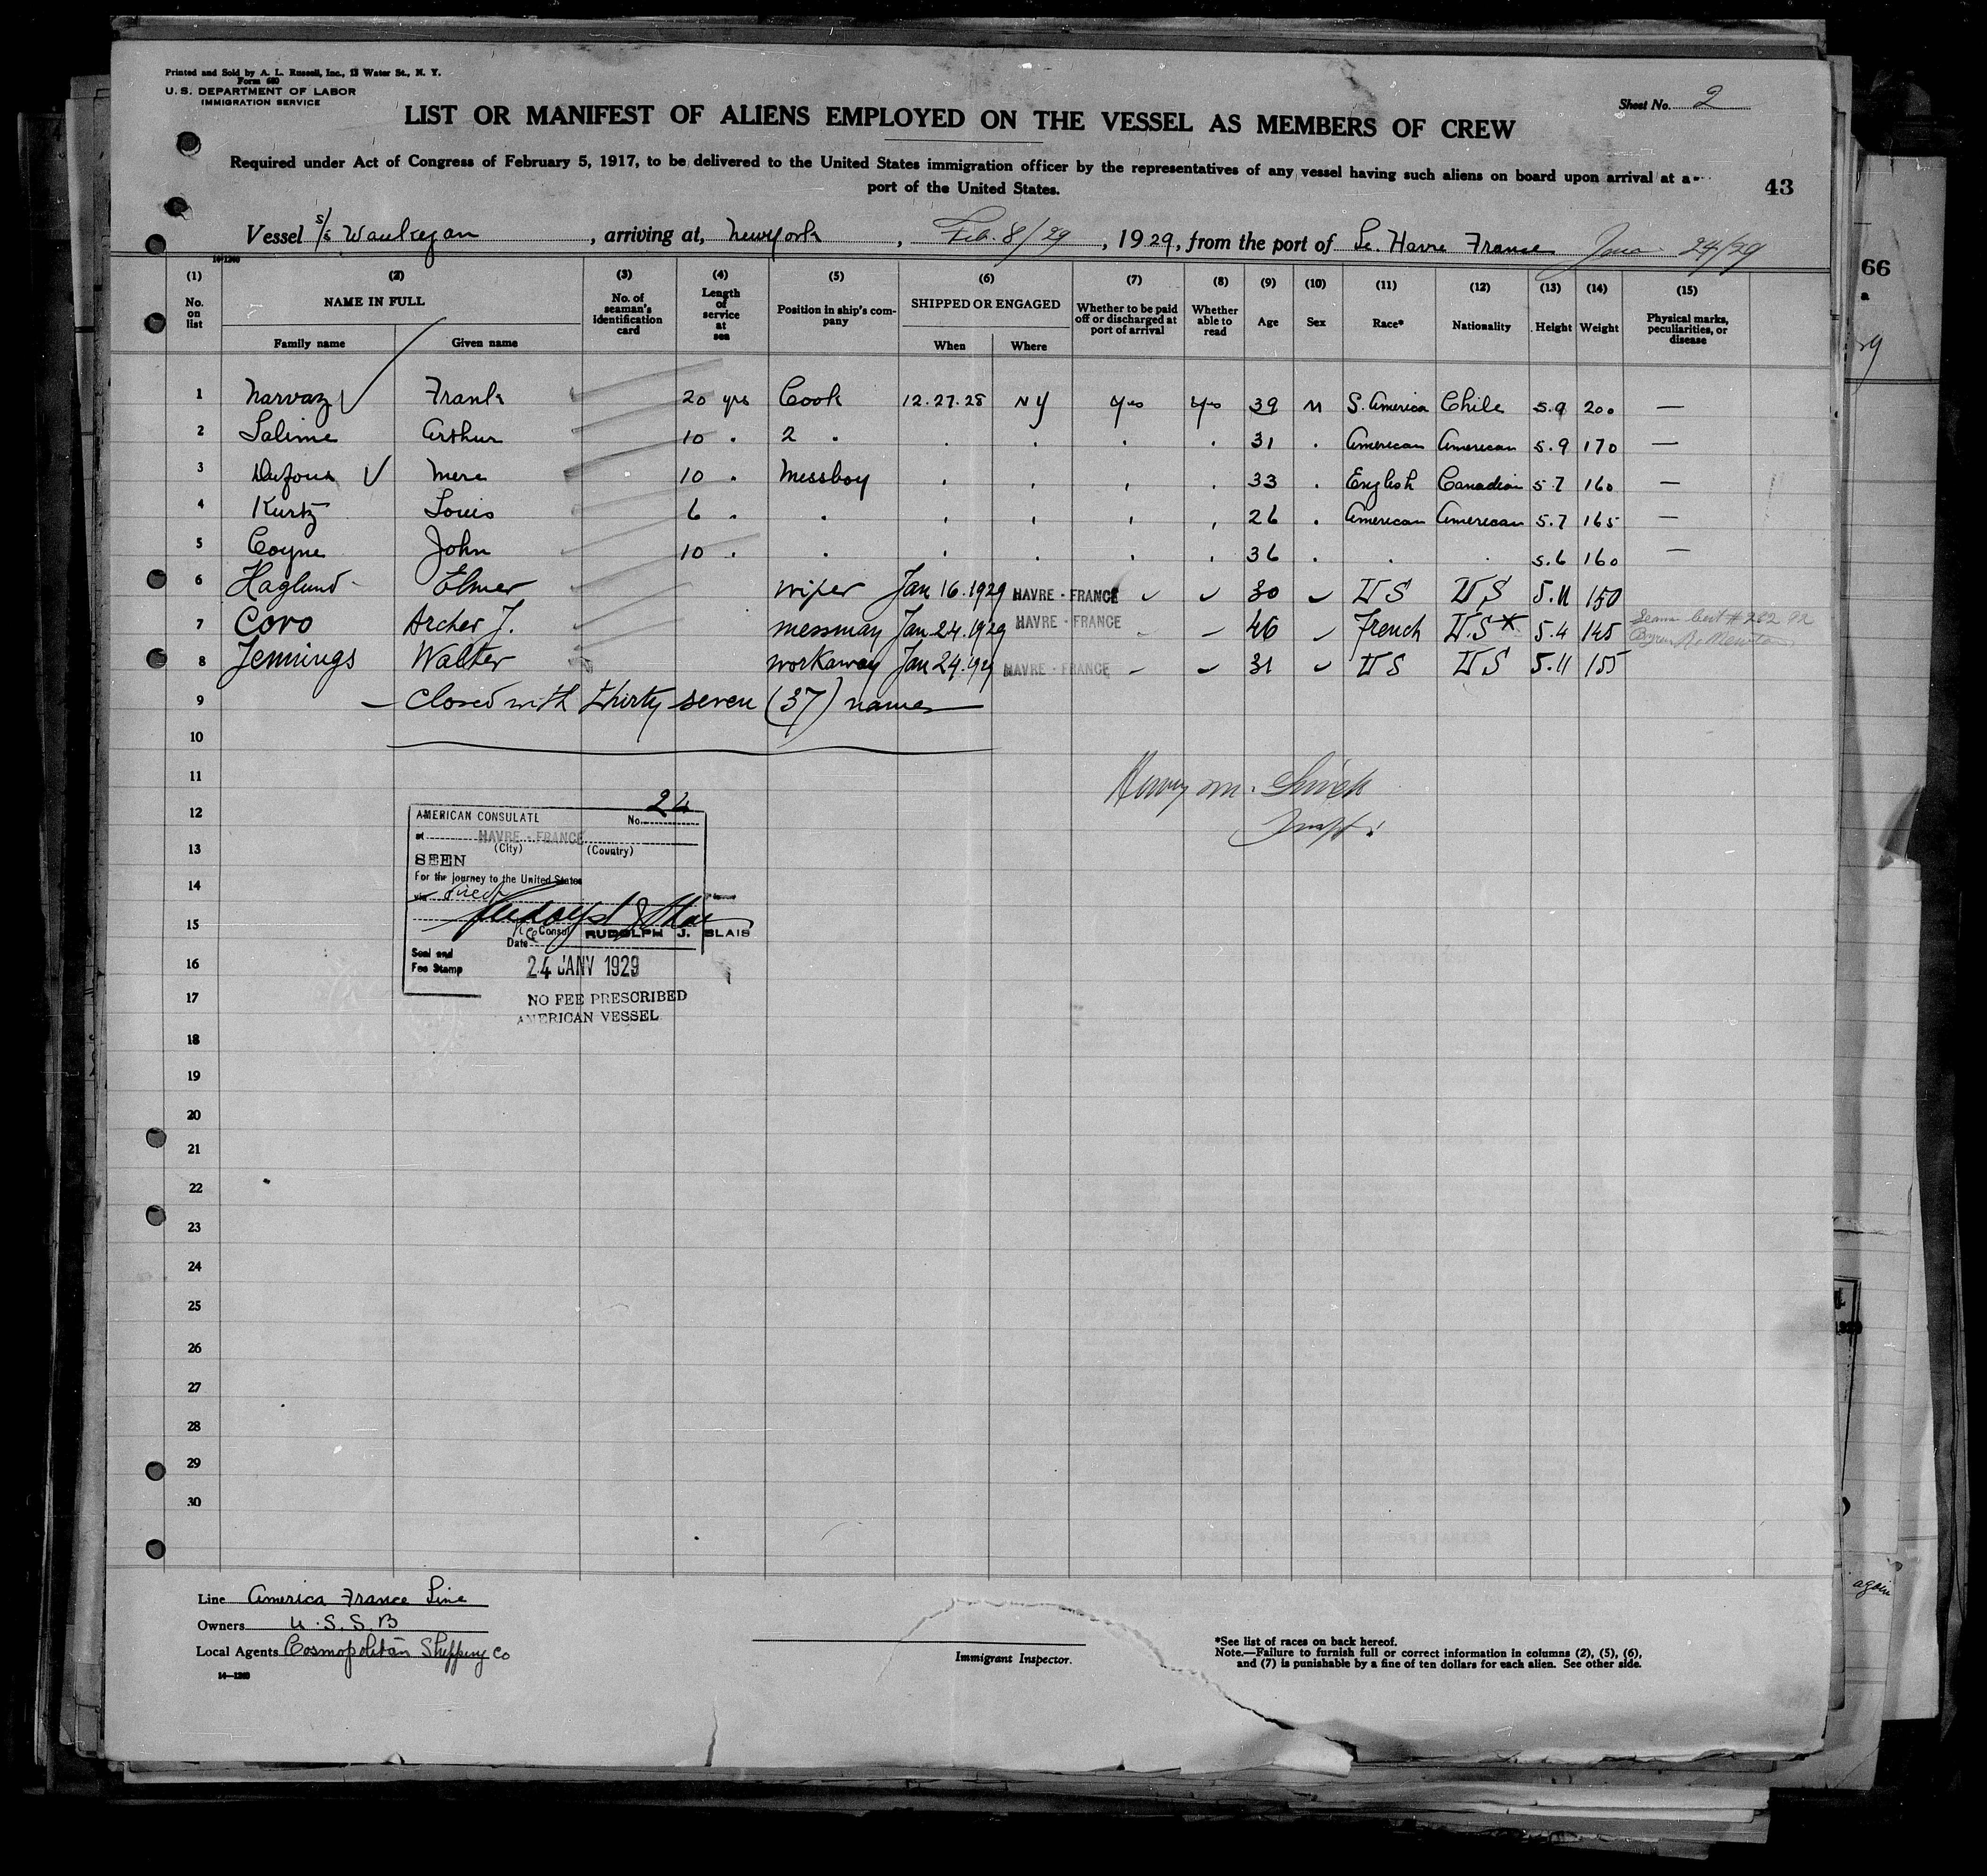 Printed and Sold by A. L. Russell, Inc., 13 Water St., N. Y.
Form 680
U. S. DEPARTMENT OF LABOR
IMMIGRATION SERVICE
Sheet No. 2
LIST OR MANIFEST OF ALIENS EMPLOYED ON THE VESSEL AS MEMBERS OF CREW
Required under Act of Congress of February 5, 1917, to be delivered to the United States immigration officer by the representatives of any vessel having such aliens on board upon arrival at a
port of the United States.
43
Vessel S/S Waukegan, arriving at, New York, Feb. 8/29, 1929, from the port of Le Havre France Jan 24/29
(1) (2) (3) (4) (5) (6) (7) (8) (9) (10) (11) (12) (13) (14) (15)
No. on list NAME IN FULL Family name Given name No. of seaman's identification card Length of service at sea Position in ship's company SHIPPED OR ENGAGED When Where Whether to be paid off or discharged at port of arrival Whether able to read Age Sex Race* Nationality Height Weight Physical marks, peculiarities, or disease
1 Narvaz Frank 20 yrs Cook 12.27.28 NY yes yes 39 M S. America Chile 5.9 200 —
2 Salime Arthur 10 . 2 . . . . . 31 . American American 5.9 170 —
3 10 . Messboy . . . . 33 . English Canadian 5.7 160 —
4 Kurtz Louis 6 . . . . . . 26 . American American 5.7 165 —
5 Coyne John 10 . . . . . . 36 . . . 5.6 160 —
6 Haglund Elmer wiper Jan 16.1929 HAVRE - FRANCE 30 US US 5.11 150
7 Coro Archer J. messman Jan 24.1929 HAVRE - FRANCE 46 French U.S* 5.4 145
8 Jennings Walter workaway Jan 24.1929 HAVRE - FRANCE 31 US US 5.11 155
9 — Closed with thirty seven (37) names
10
11
12
13
14
15
16
17
18
19
20
21
22
23
24
25
26
27
28
29
30
AMERICAN CONSULATE No. 24
at HAVRE - FRANCE
(City) (Country)
SEEN
For the journey to the United States
via direct
Consul RUDOLPH J. BLAIS
Date
Seal and
Fee Stamp
24 JANV 1929
NO FEE PRESCRIBED
AMERICAN VESSEL
Line America France Line
Owners U.S.S.B
Local Agents Cosmopolitan Shipping Co
14—1240
Immigrant Inspector.
*See list of races on back hereof.
Note.—Failure to furnish full or correct information in columns (2), (5), (6),
and (7) is punishable by a fine of ten dollars for each alien. See other side.
66
again